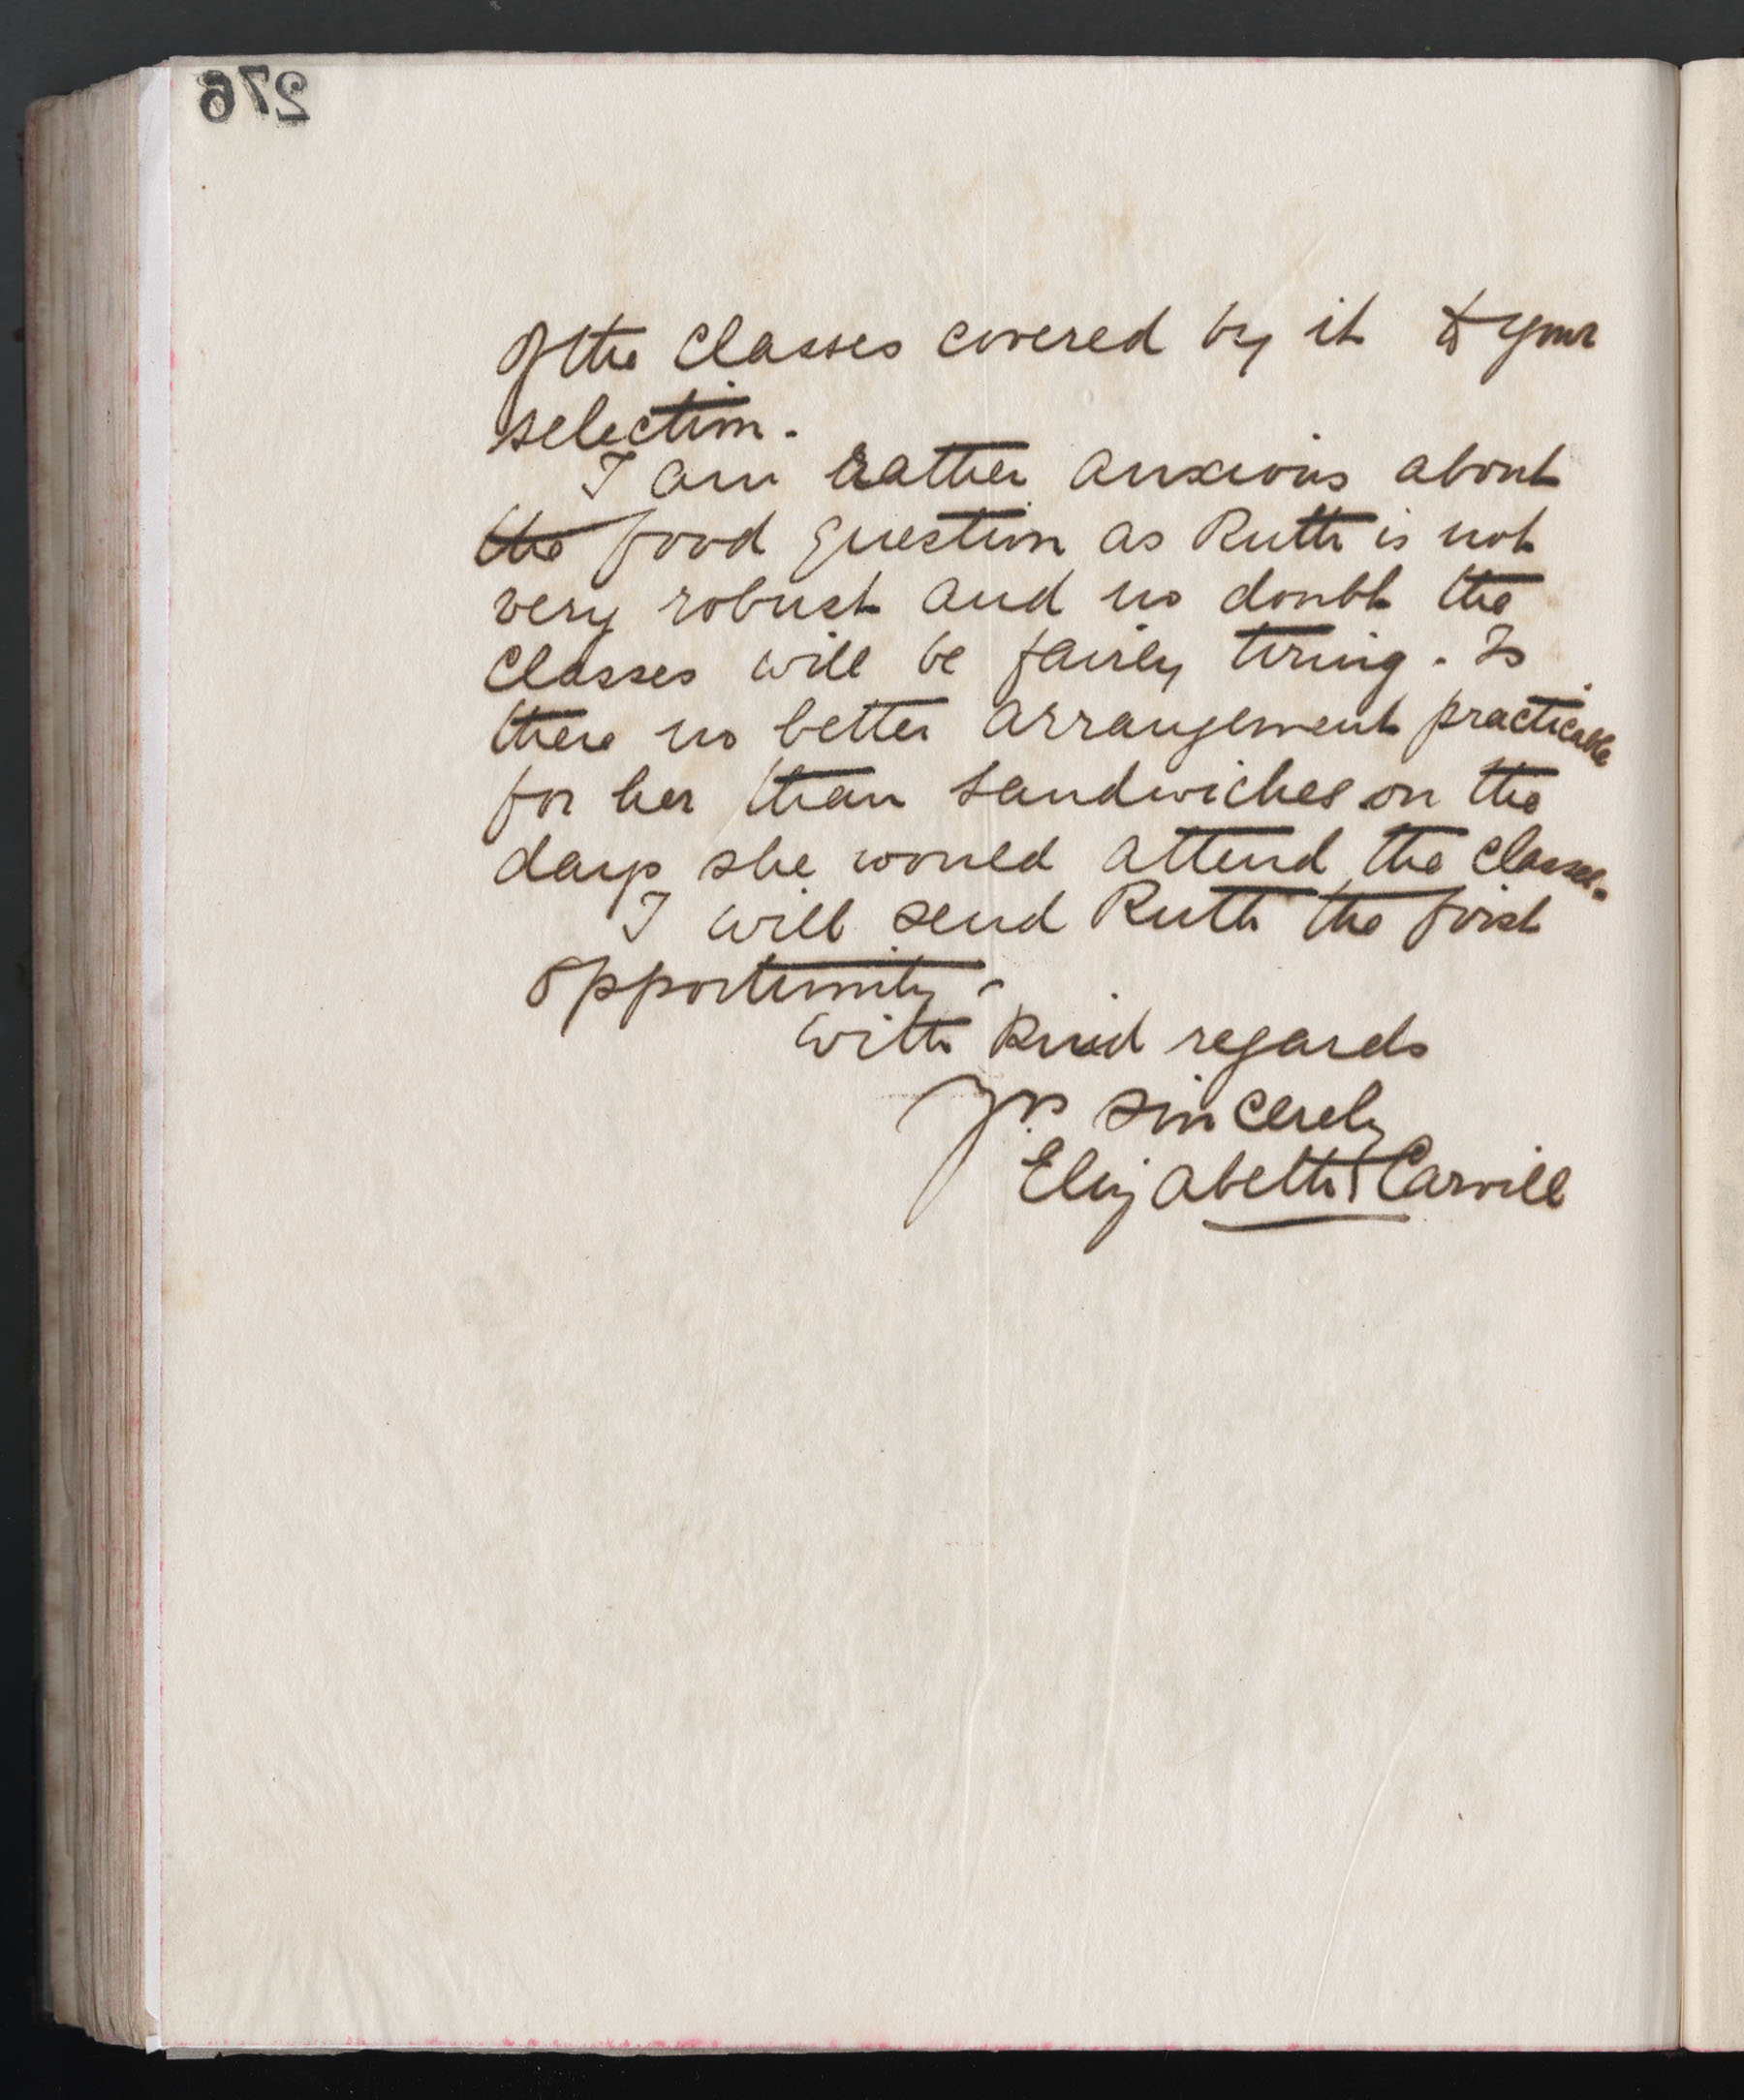 276
of the classes covered by it to your
selection.
I am rather anxious about
the food question as Ruth is not
very robust and no doubt the
classes will be fairly tiring. Is
there no better arrangement practicable
for her than sandwiches on the
days she would attend the classes.
I will send Ruth the first
opportunity.
With kind regards
Yrs sincerely
Elizabeth Carvill